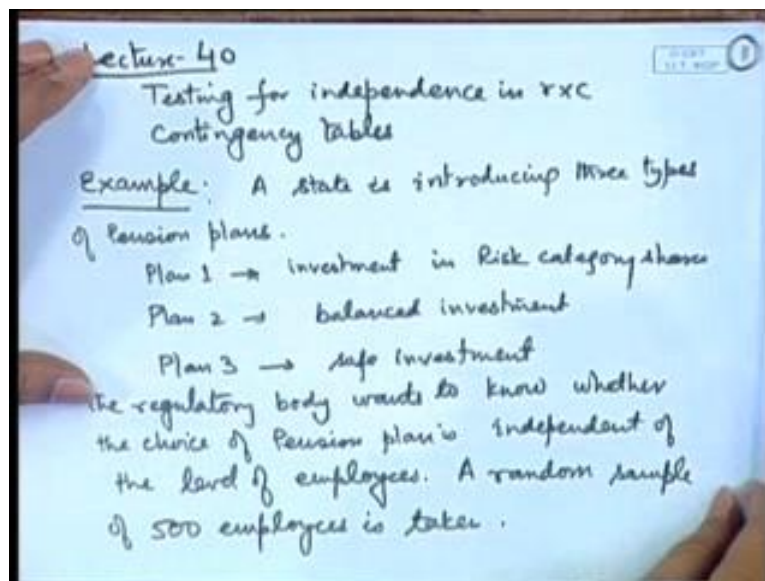 Lecture-40
Testing for independence in rxc
Contingency Tables
Example: A state is introducing three types
of Pension plans.
Plan 1 → investment in Risk category shares
Plan 2 → balanced investment
Plan 3 → safe investment
The regulatory body wants to know whether
the choice of Pension plan is independent of
the level of employees. A random sample
of 500 employees is taken.